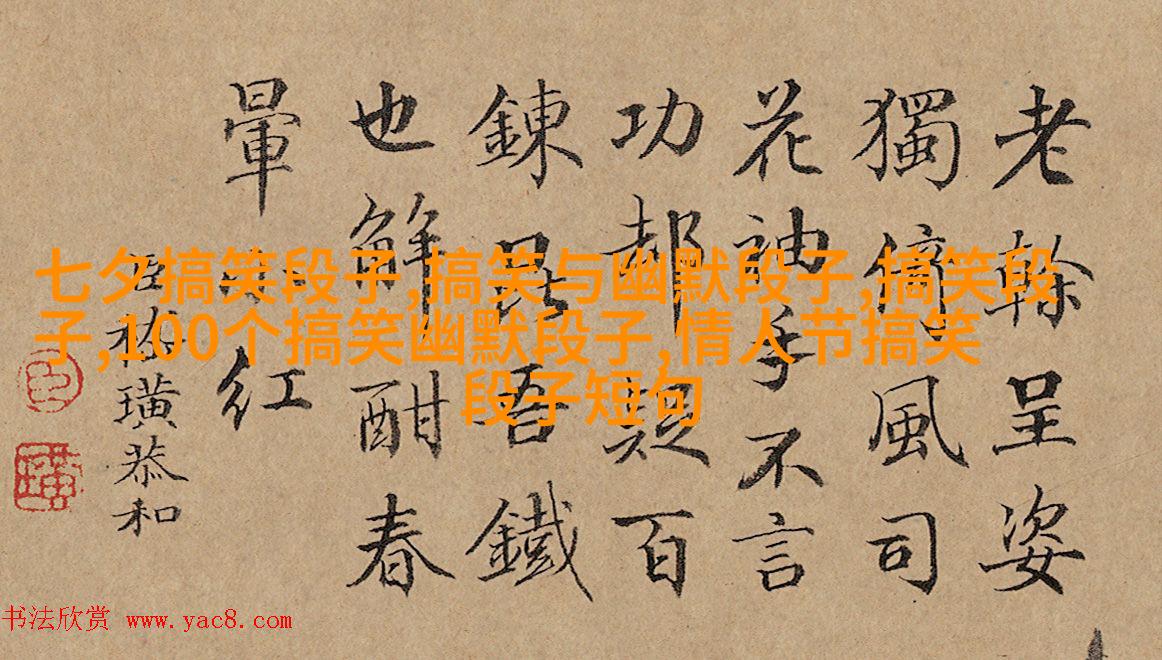 老榦呈姿
獨倚風司
花神手不言
功都疑百
鍊昆吾鐵
也解酣春
暈小紅
臣嵇璜恭和
七夕搞笑段子,搞笑与幽默段子,搞笑段
子,100个搞笑幽默段子,情人节搞笑
段子短句
书法欣赏 www.yac8.com